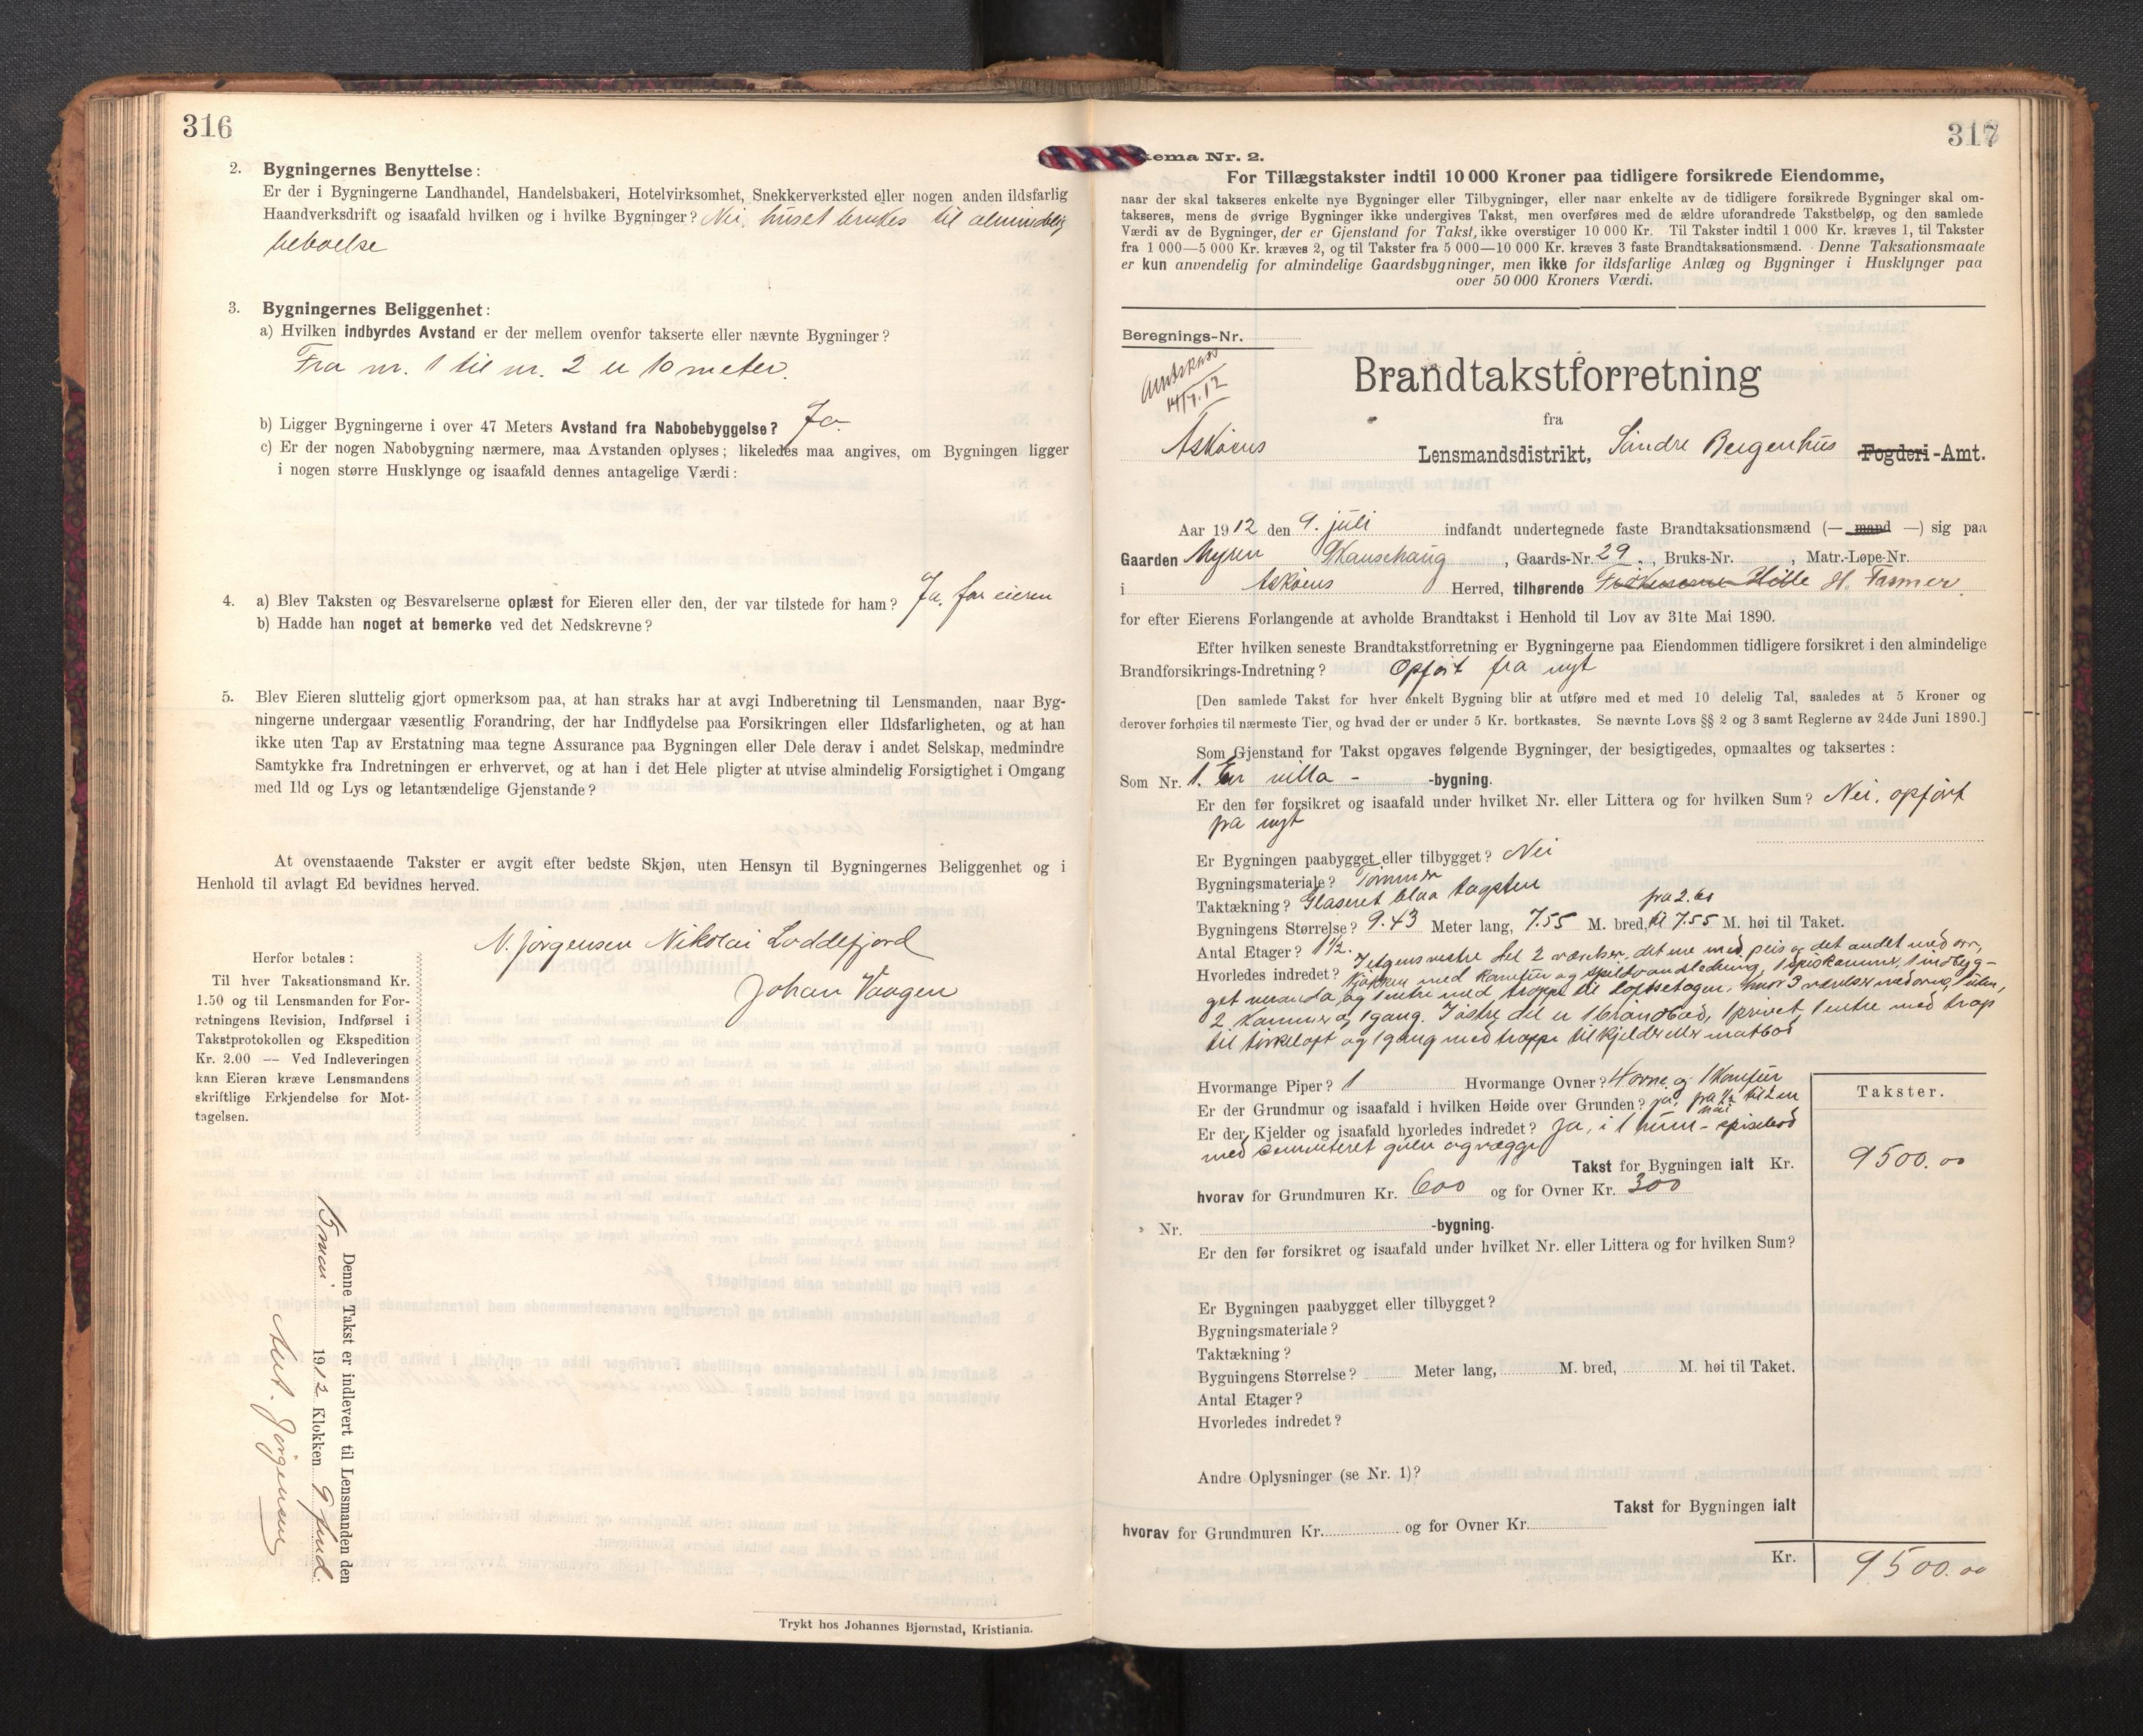 316
2. Bygningernes Benyttelse:
Er der i Bygningerne Landhandel, Handelsbakeri, Hotelvirksomhet, Snekkerverksted eller nogen anden ildsfarlig
Haandverksdrift og isaafald hvilken og i hvilke Bygninger? Nei, huset brukes til almindelig
beboelse
3. Bygningernes Beliggenhet:
a) Hvilken indbyrdes Avstand er der mellem ovenfor takserte eller nævnte Bygninger?
Fra nr. 1 til nr. 2 er 10 meter.
b) Ligger Bygningerne i over 47 Meters Avstand fra Nabobebyggelse? Ja.
c) Er der nogen Nabobygning nærmere, maa Avstanden oplyses; likeledes maa angives, om Bygningen ligger
i nogen større Husklynge og isaafald dennes antagelige Værdi:
4. a) Blev Taksten og Besvarelserne oplæst for Eieren eller den, der var tilstede for ham? Ja, for eieren
b) Hadde han noget at bemerke ved det Nedskrevne?
5. Blev Eieren sluttelig gjort opmerksom paa, at han straks har at avgi Indberetning til Lensmanden, naar Byg-
ningerne undergaar væsentlig Forandring, der har Indflydelse paa Forsikringen eller Ildsfarligheten, og at han
ikke uten Tap av Erstatning maa tegne Assurance paa Bygningen eller Dele derav i andet Selskap, medmindre
Samtykke fra Indretningen er erhvervet, og at han i det Hele pligter at utvise almindelig Forsigtighet i Omgang
med Ild og Lys og letantændelige Gjenstande?
At ovenstaaende Takster er avgit efter bedste Skjøn, uten Hensyn til Bygningernes Beliggenhet og i
Henhold til avlagt Ed bevidnes herved.
N. Jørgensen Nikolai Loddefjord
Johan Vaagen
Herfor betales:
Til hver Taksationsmand Kr.
1.50 og til Lensmanden for For-
retningens Revision, Indførsel i
Takstprotokollen og Ekspedition
Kr. 2.00 — Ved Indleveringen
kan Eieren kræve Lensmandens
skriftlige Erkjendelse for Mot-
tagelsen.
Denne Takst er indlevert til Lensmanden den
1912 Klokken 9 fmd.
Jørgensen
Trykt hos Johannes Bjørnstad, Kristiania.
317
ema Nr. 2.
For Tillægstakster indtil 10 000 Kroner paa tidligere forsikrede Eiendomme,
naar der skal takseres enkelte nye Bygninger eller Tilbygninger, eller naar enkelte av de tidligere forsikrede Bygninger skal om-
takseres, mens de øvrige Bygninger ikke undergives Takst, men overføres med de ældre uforandrede Takstbeløp, og den samlede
Værdi av de Bygninger, der er Gjenstand for Takst, ikke overstiger 10 000 Kr. Til Takster indtil 1 000 Kr. kræves 1, til Takster
fra 1 000—5 000 Kr. kræves 2, og til Takster fra 5 000—10 000 Kr. kræves 3 faste Brandtaksationsmænd. Denne Taksationsmaate
er kun anvendelig for almindelige Gaardsbygninger, men ikke for ildsfarlige Anlæg og Bygninger i Husklynger paa
over 50 000 Kroners Værdi.
Beregnings-Nr.
14/9.12
Brandtakstforretning
fra
Askøens Lensmandsdistrikt, Søndre Bergenhus Fogderi-Amt.
Aar 1912 den 9. juli indfandt undertegnede faste Brandtaksationsmænd (— mand —) sig paa
Gaarden Myren , Gaards-Nr. 29 , Bruks-Nr. , Matr.-Løpe-Nr.
i Askøens Herred, tilhørende H. Fasmer
for efter Eierens Forlangende at avholde Brandtakst i Henhold til Lov av 31te Mai 1890.
Efter hvilken seneste Brandtakstforretning er Bygningerne paa Eiendommen tidligere forsikret i den almindelige
Brandforsikrings-Indretning? Opført fra nyt
[Den samlede Takst for hver enkelt Bygning blir at utføre med et med 10 delelig Tal, saaledes at 5 Kroner og
derover forhøies til nærmeste Tier, og hvad der er under 5 Kr. bortkastes. Se nævnte Lovs §§ 2 og 3 samt Reglerne av 24de Juni 1890.]
Som Gjenstand for Takst opgaves følgende Bygninger, der besigtigedes, opmaaltes og taksertes:
Som Nr. 1. En villa - -bygning.
Er den før forsikret og isaafald under hvilket Nr. eller Littera og for hvilken Sum? Nei, opført
fra nyt
Er Bygningen paabygget eller tilbygget? Nei
Bygningsmateriale? Tømmer
Taktækning? Glaseret blaa tagsten
Bygningens Størrelse? 9.43 Meter lang, 7.55 M. bred, fra 2.60 til 7.55 M. høi til Taket.
Antal Etager? 1½.
Hvorledes indredet? I etgens vestre del 2 værelser, det ene med peis og det andet med ovn,
kjøkken med komfur og spildvandsledning, 1 spiskammer, 1 indbyg-
get veranda og 1 entre med trappe til loftsetagen, hvor 3 værelser med ovn, 1 uten,
2 kammer og 1 gang. I østre del er 1 brændbod, 1 privet, 1 entre med trap
til tørkeloft og 1 gang med trappe til kjelder eller matbod
Hvormange Piper? 1 Hvormange Ovner? 4 ovne og 1 komfur
Er der Grundmur og isaafald i hvilken Høide over Grunden? ja, fra ½ til 2 m
Er der Kjelder og isaafald hvorledes indredet? Ja, i 1 rum - spisebod
med cementeret gulv og vægge
Takster.
Takst for Bygningen ialt Kr. 9500.00
hvorav for Grundmuren Kr. 600 og for Ovner Kr. 300
» Nr. -bygning.
Er den før forsikret og isaafald under hvilket Nr. eller Littera og for hvilken Sum?
Er Bygningen paabygget eller tilbygget?
Bygningsmateriale?
Taktækning?
Bygningens Størrelse? Meter lang, M. bred, M. høi til Taket.
Antal Etager?
Hvorledes indredet?
Andre Oplysninger (se Nr. 1)?
Takst for Bygningen ialt
hvorav for Grundmuren Kr. og for Ovner Kr.
Kr. 9500.00